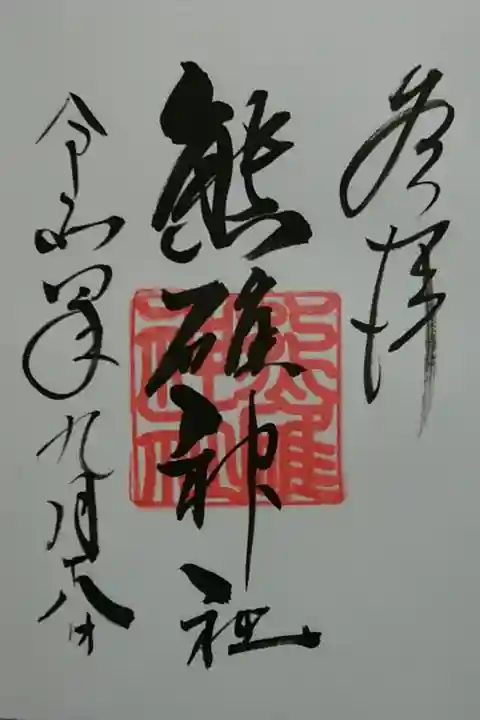 参拝
熊碓神社
令和四年九月十八日
熊碓
神社